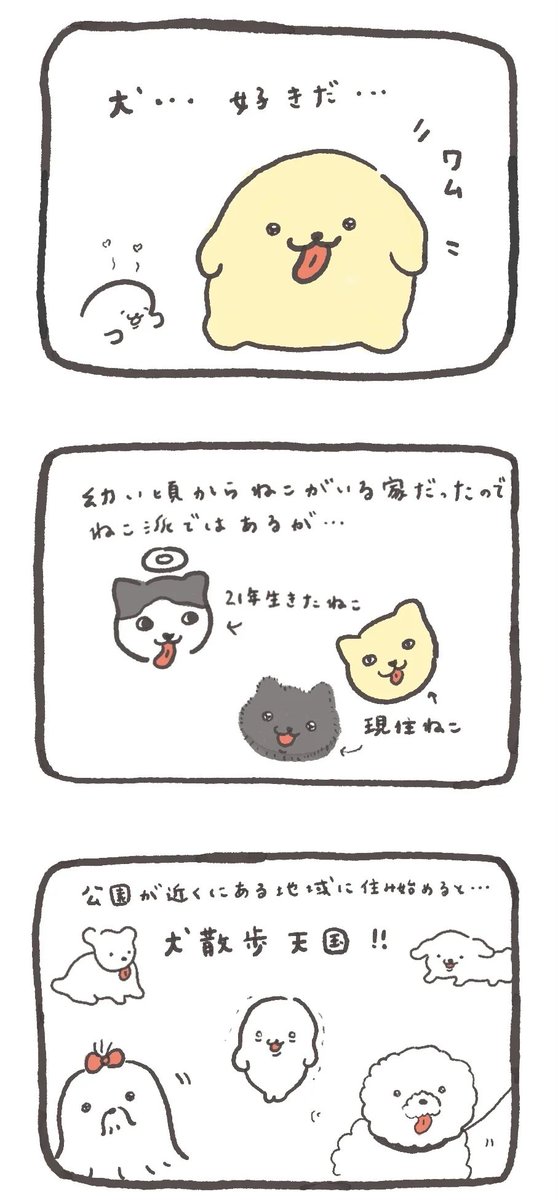 犬・・・ 好きだ・・・
ワム
幼い頃からねこがいる家だったので
ねこ派ではあるが…
21年生きたねこ
現住ねこ
公園が近くにある地域に住み始めると…
犬散歩天国!!